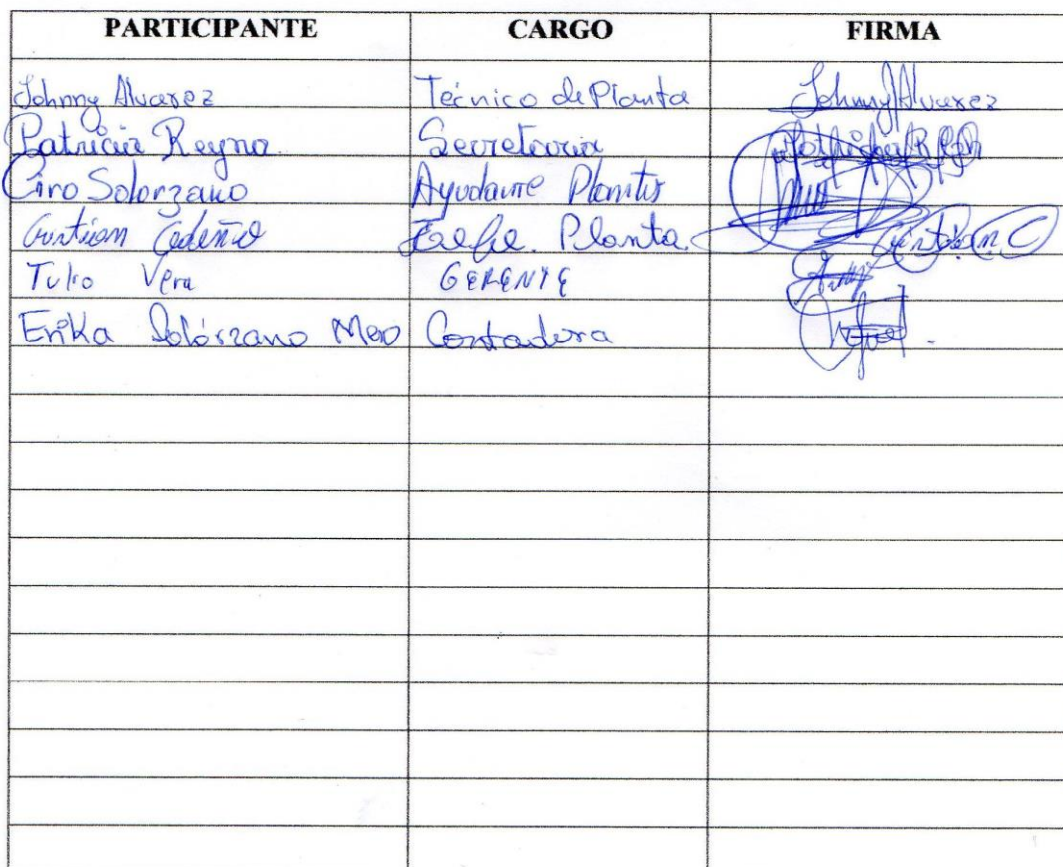 PARTICIPANTE CARGO FIRMA
Johnny Alvarez Técnico de Planta Johnny Alvarez
Patricia Reyna Secretaria
Ciro Solorzano Ayudante Planta
Cristian Cedeño Jefe. Planta.
Tulio Vera GERENTE
Erika Solórzano Mero Contadora